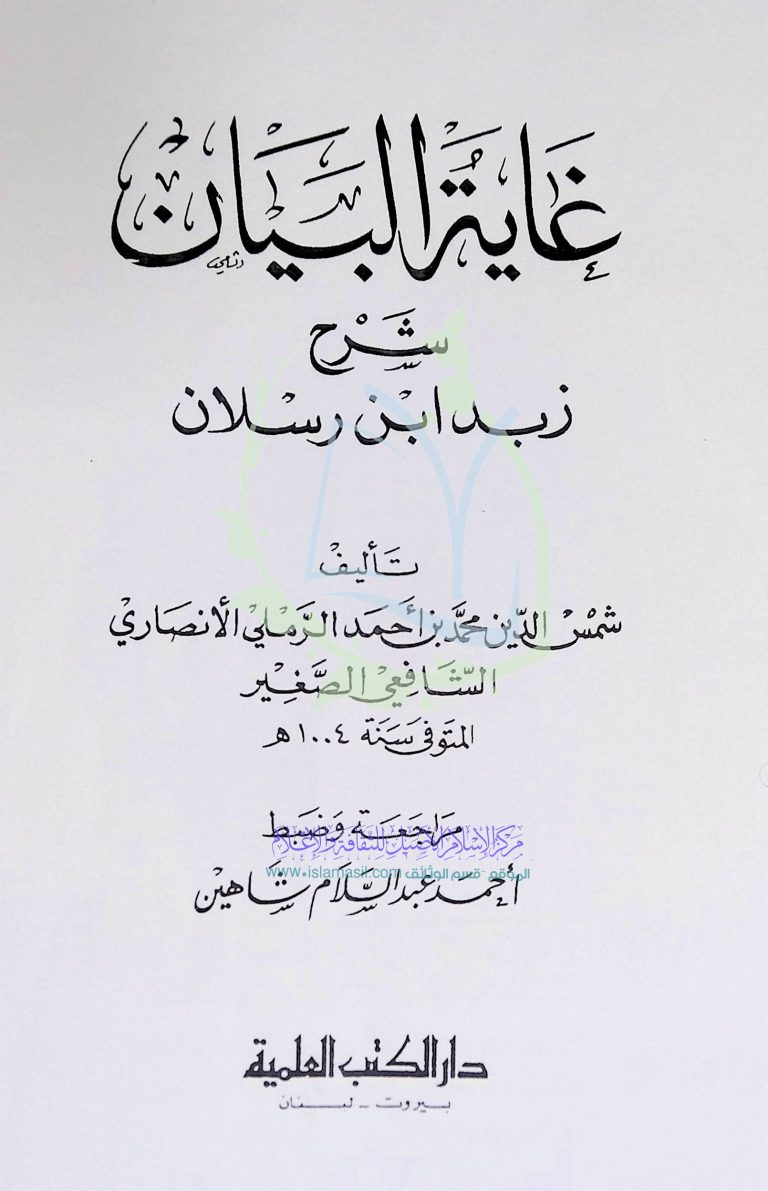 غَايَةُ البَيَانْ
شَرْح
زبد ابْن رسْلان
تَأليفْ
شَمْسْ الدّين محمَّد بن أحمَد الرّمْليْ الأنصَاريْ
الشَّافِعِيْ الصَّغِيْر
المتوفى سَنَة ١٠٠٤ هـ
مرَاجَعَة وَضبَط
مركز الإسلام الأصيل للثقافة والإعلام
الموقع - قسم الوثائق www.islamasil.com
أحمَد عبد السَّلَام شَاهين
دار الكتب العلمية
بيروت - لبنان